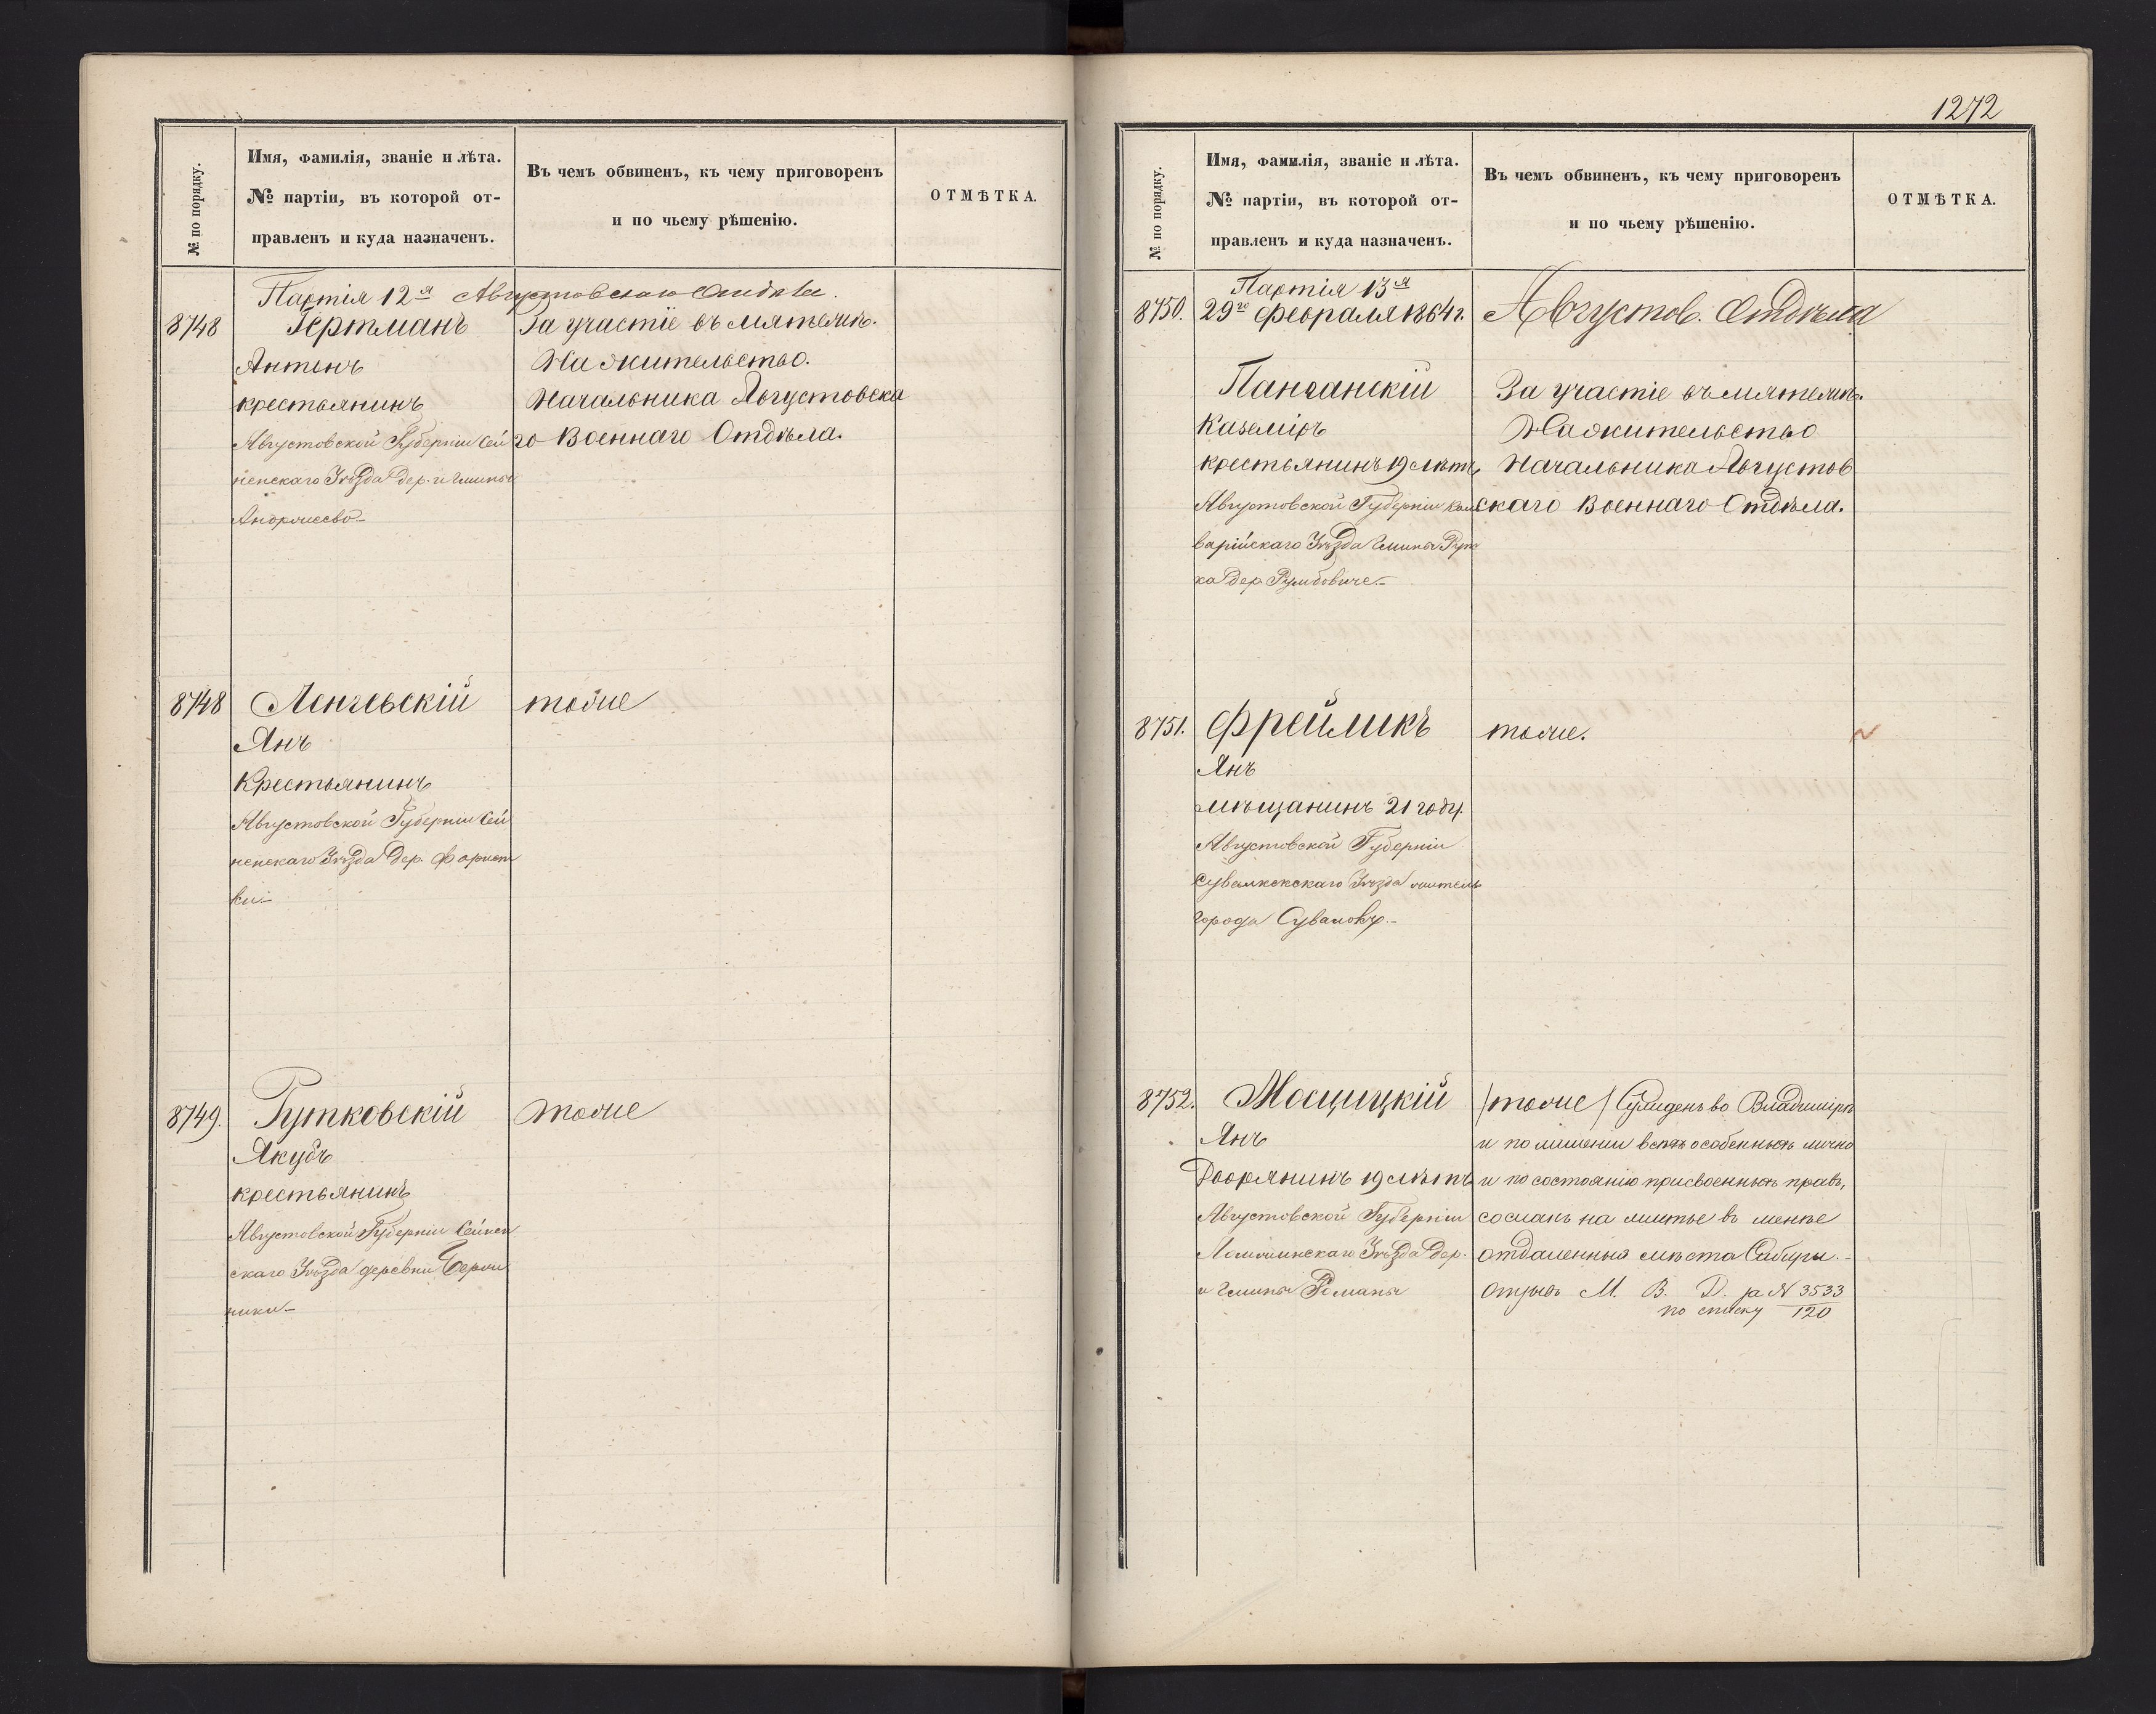 № по порядку.
Имя, фамилія, званіе и лѣта.
№ партіи, въ которой от-
правленъ и куда назначенъ.
Въ чемъ обвиненъ, къ чему приговоренъ
и по чьему рѣшенію.
ОТМѢТКА.
Партія 12я Августовскаго Отдѣла.
8748
Гертманъ
Антонъ
крестьянинъ
Августовской Губерніи Сей
ненскаго Уѣзда дер. и гмины
За участіе въ мятежѣ.
На жительство.
Начальника Августовска
го Военнаго Отдѣла.
8748
Ленчевскій
Янъ
Крестьянинъ
Августовской Губерніи Сей
ненскаго Уѣзда дер.
ки
тоже
8749.
Гутковскій
Якубъ
крестьянинъ
Августовской Губерніи Сейнен
скаго Уѣзда деревни
ники
тоже
1272
№ по порядку.
Имя, фамилія, званіе и лѣта.
№ партіи, въ которой от-
правленъ и куда назначенъ.
Въ чемъ обвиненъ, къ чему приговоренъ
и по чьему рѣшенію.
ОТМѢТКА.
Партія 13я
8750.
29го февраля 1864 г.
Августов. Отдѣла
Панчанскій
Каземіръ
крестьянинъ 19 лѣтъ
Августовской Губерніи Каль
варійскаго Уѣзда гмины Руд
ка дер. Румбовиче
За участіе въ мятежѣ.
На жительство
Начальника Августов
скаго Военнаго Отдѣла.
8751.
Фреймикъ
Янъ
мѣщанинъ 21 году.
Августовской Губерніи
Сувалкскскаго Уѣзда житель
города Сувалокъ
тоже.
8752.
Мосцицкій
Янъ
Дворянинъ 19 лѣтъ
Августовской Губерніи
Ломжинскаго Уѣзда дер.
и гмины
/тоже/ Сужденъ во Владимірѣ
и по лишеніи всѣхъ особенныхъ лично
и по состоянію присвоенныхъ правъ,
сосланъ на житье въ менѣе
отдаленныя мѣста Сибири.
Отзывъ М. В. Д. за № 3533
по списку 120